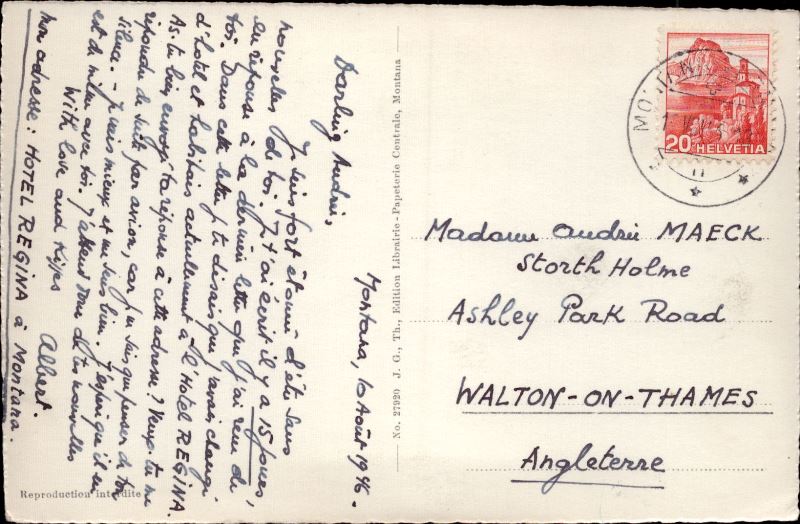 Montana, 10 Août 1946.
Darling Andrée,
Je suis fort étonné d'être sans
nouvelles de toi. Je t'ai écrit il y a 15 jours,
en réponse à la dernière lettre que j'ai reçu de
toi. Dans cette lettre je te disais que j'avais changé
d'hôtel et habitais actuellement à l'Hotel REGINA.
As-tu bien envoyé ta réponse à cette adresse? Veux-tu me
répondre de suite par avion, car je ne sais que penser de ton
silence. - Je vais mieux et me sens bien. J'espère qu'il en
est de même avec toi. J'attend donc de tes nouvelles
With love and kisses
Albert.
mon adresse: HOTEL REGINA à Montana.
Reproduction interdite
No. 27920 J. G., Th., Edition Librairie-Papeterie Centrale, Montana
20 HELVETIA
MONTANA
Madame Andrée MAECK
Storth Holme
Ashley Park Road
WALTON-ON-THAMES
Angleterre